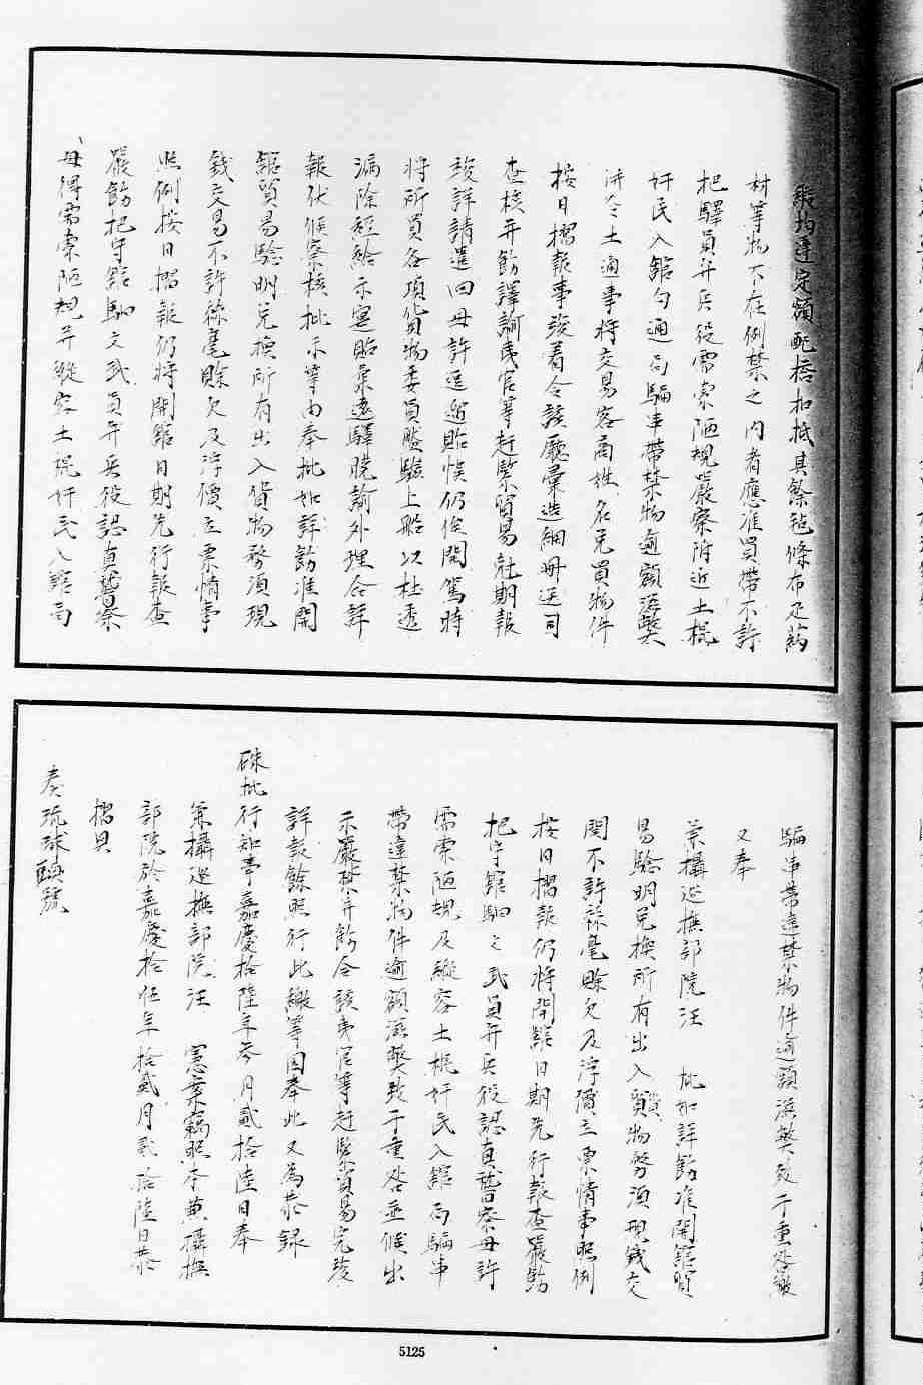 緞均遵定額配搭扣抵其餘毡條布疋葯
材等物不在例禁之內者應准買帶不許
把驛員弁兵役需索陋規嚴察附近土棍
奸民入館勾通局騙串帶禁物逾額滋弊
并令土通事將交易客商姓名兌買物件
按日摺報事竣着令該廳彙造細冊送司
查核并飭譯諭夷官等赶緊貿易訖期報
竣詳請遣囬毋許延逗貽悞仍俟開駕時
將所買各項貨物委員盤驗上船以杜透
漏除經給示寔貼柔遠驛曉諭外理合詳
報伏候察核批示等由奉批如詳飭准開
舘貿易驗明兌換所有出入貨物務須現
錢交易不許絲毫賒欠及浮價立票情事
照例按日摺報仍將開舘日期先行報查
嚴飭把守舘馹文武員弁兵役認真稽察
毋得需索陋規并縱容土棍奸民入舘局
騙串帶違禁物件逾額滋弊致干重咎繳
又奉
兼攝巡撫部院汪 批如詳飭准開舘貿
易驗明兌換所有出入貨物務須現錢交
関不許絲毫賒欠及浮價立票情事照例
按日摺報仍將開舘日期先行報查嚴飭
把守舘馹文武員弁兵役認真稽察毋許
需索陋規及縱容土棍奸民入舘局騙串
帶違禁物件逾額滋弊致干重咎並候出
示嚴禁并飭令該夷官等赶緊貿易完竣
詳報餘照行此繳等因奉此又為恭錄
硃批行知事嘉慶拾陸年叁月貳拾陸日奉
兼攝巡撫部院汪 憲案竊照本兼攝撫
部院於嘉慶拾伍年拾貳月貳拾陸日恭
摺具
奏琉球鷗號
5125